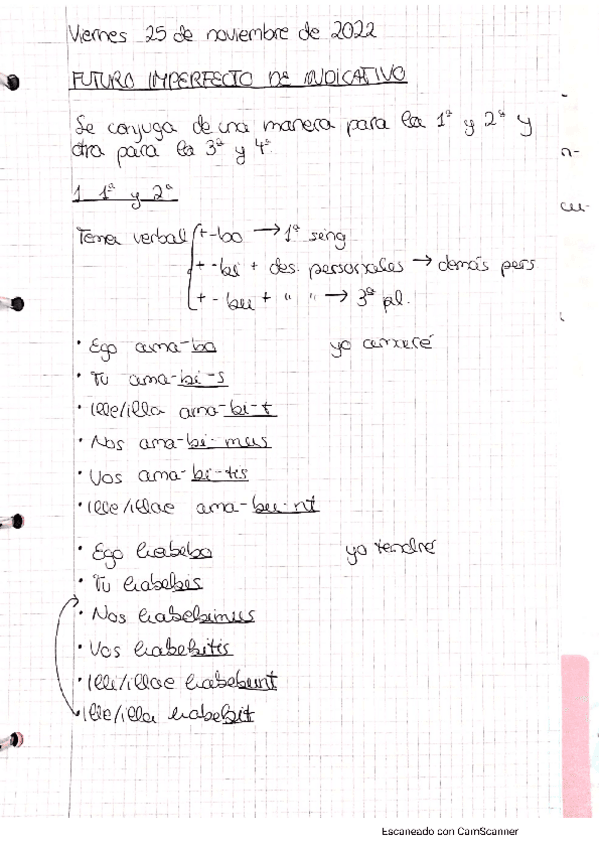 Viernes 25 de noviembre de 2022
FUTURO IMPERFECTO DE INDICATIVO
Se conjuga de una manera para la 1ª y 2ª y
otra para la 3ª y 4ª.
1 1ª y 2ª
Tema verbal + -bo → 1ª sing
+ -bi + des. personales → demás pers
+ - bu + " " → 3ª pl.
· Ego ama-bo yo amaré
· Tu ama-bi-s
· Ille/illa ama-bi-t
· Nos ama-bi-mus
· Vos ama-bi-tis
· Ille/illae ama-bu-nt
· Ego habebo yo tendré
· Tu habebis
· Nos habebimus
· Vos habebitis
· Illi/illae habebunt
· Ille/illa habebit
n-
cu-
Escaneado con CamScanner